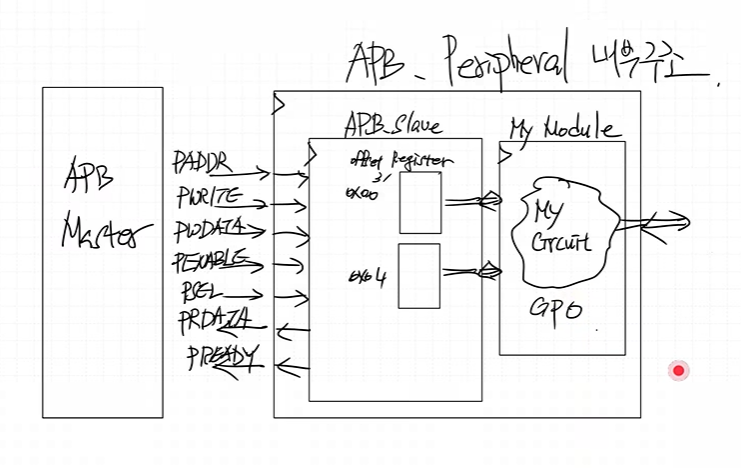 APB_ Peripheral 내부구조.
APB
Master
PADDR
PWRITE
PWDATA
PENABLE
PSEL
PRDATA
PREADY
APB_Slave
offset Register
31
0x00
0x04
My Module
My
Circuit
GPO